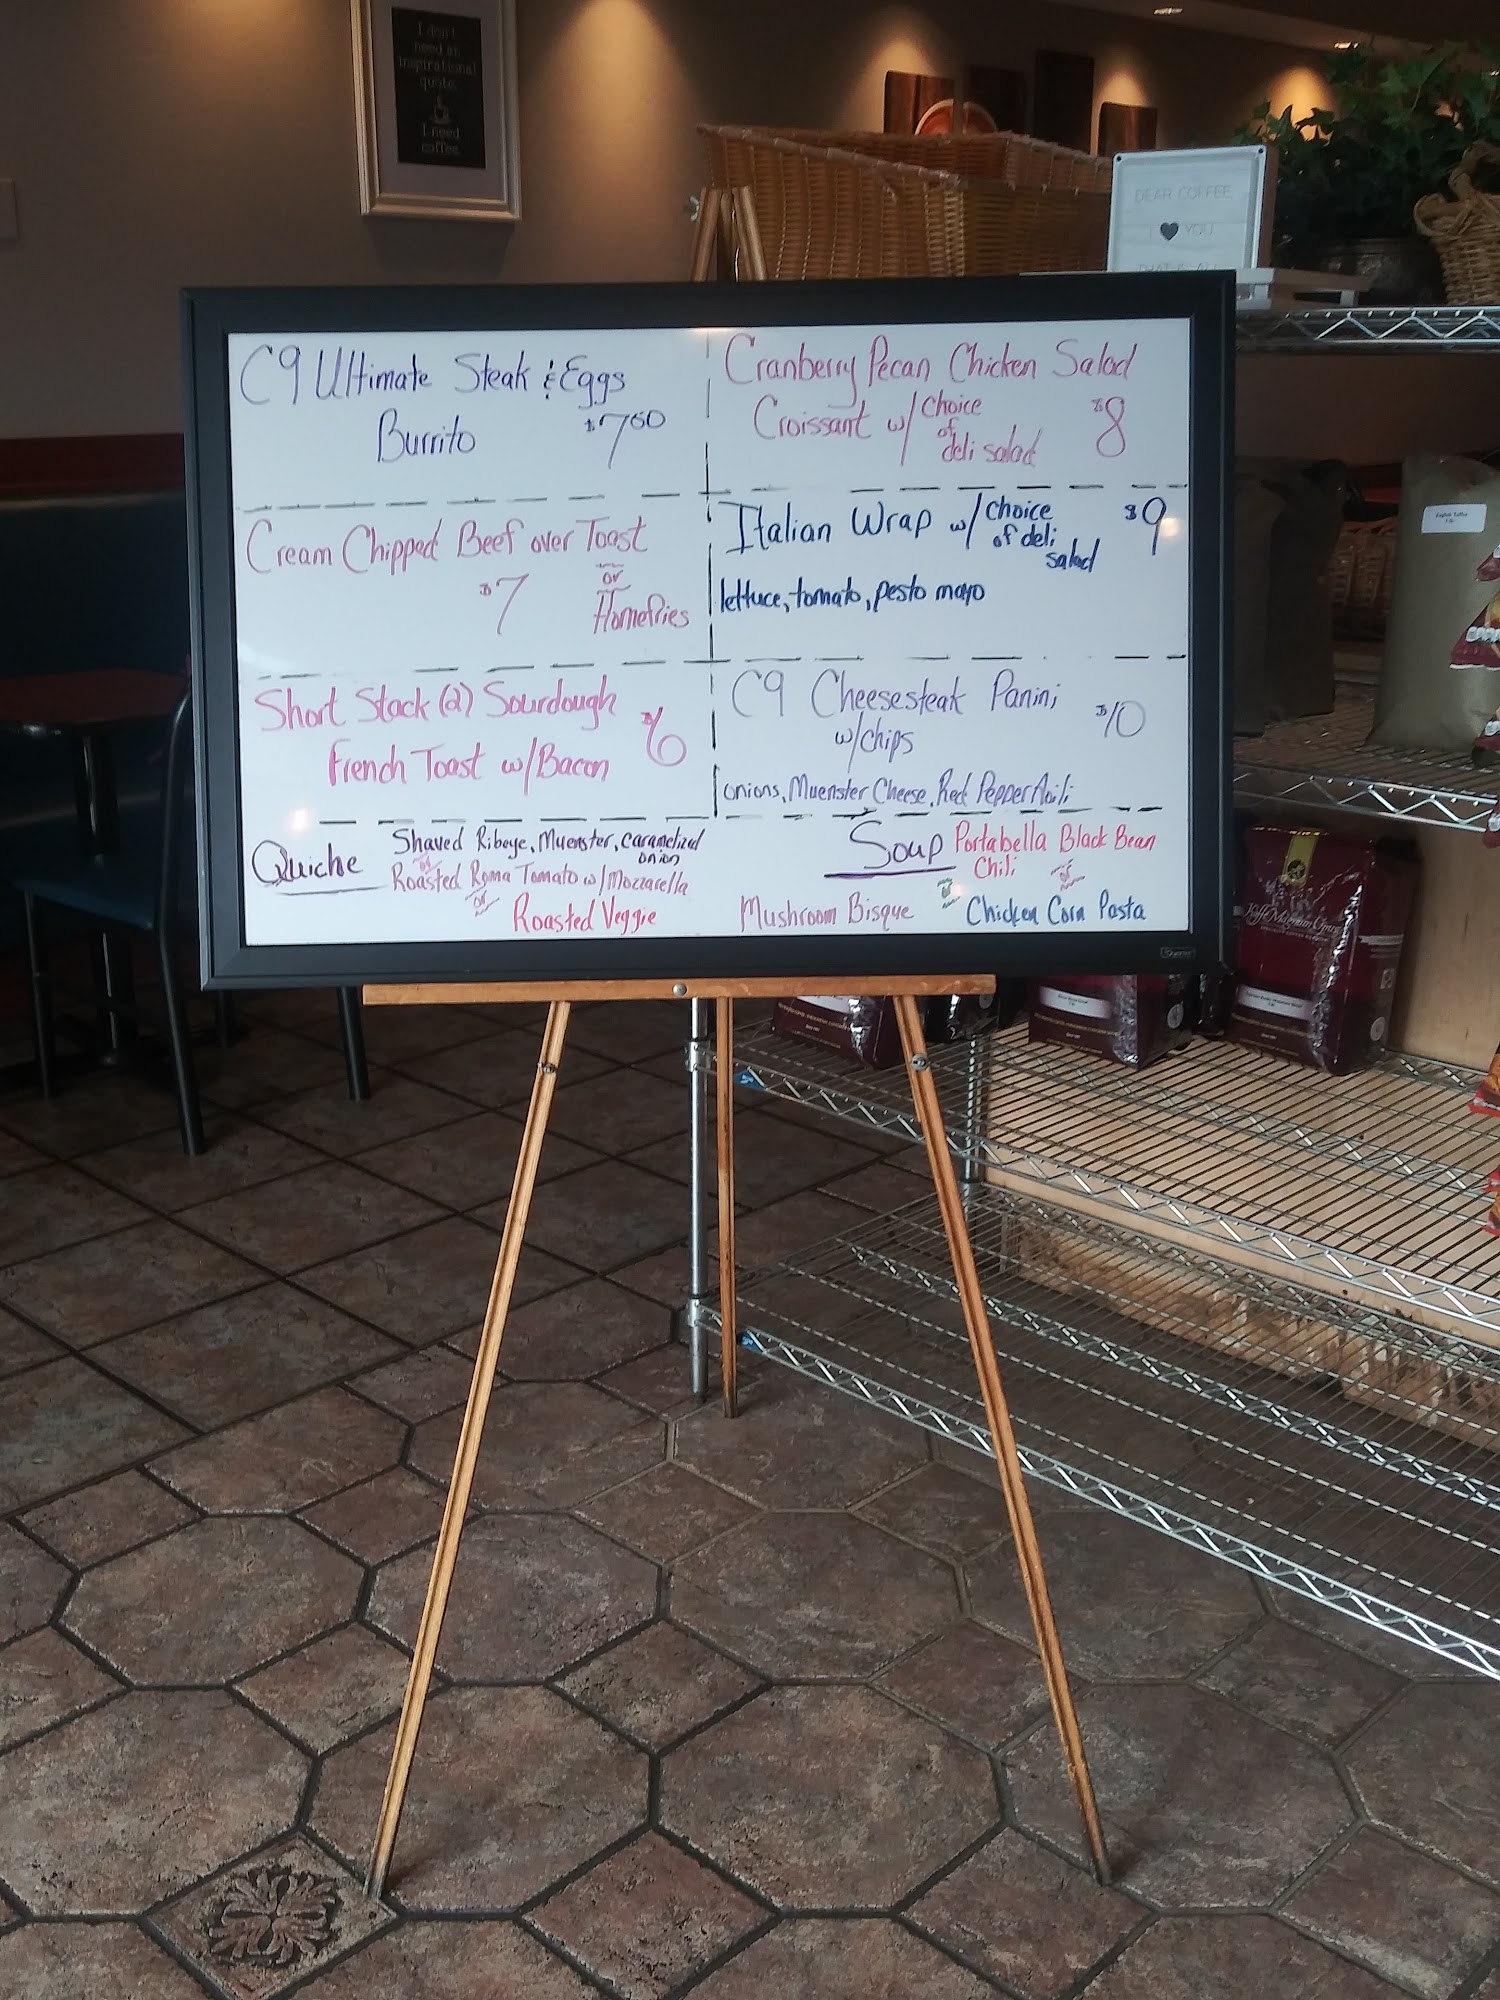 I don't
need an
inspirational
quote.
I need
coffee.
DEAR COFFEE,
I ♥ YOU
THAT IS ALL
C9 Ultimate Steak & Eggs
Burrito $7.50
Cream Chipped Beef over Toast
or
$7 Homefries
Short Stack (2) Sourdough
French Toast w/Bacon $6
Cranberry Pecan Chicken Salad
Croissant w/ choice of deli salad $8
Italian Wrap w/ choice of deli salad $9
lettuce, tomato, pesto mayo
C9 Cheesesteak Panini $10
w/chips
onions, Muenster Cheese, Red Pepper Aoili
Quiche Shaved Ribeye, Muenster, caramelized onion
or
Roasted Roma Tomato w/Mozzarella
or
Roasted Veggie
Soup Portabella Black Bean
Chili or
Mushroom Bisque or Chicken Corn Pasta
Quartet